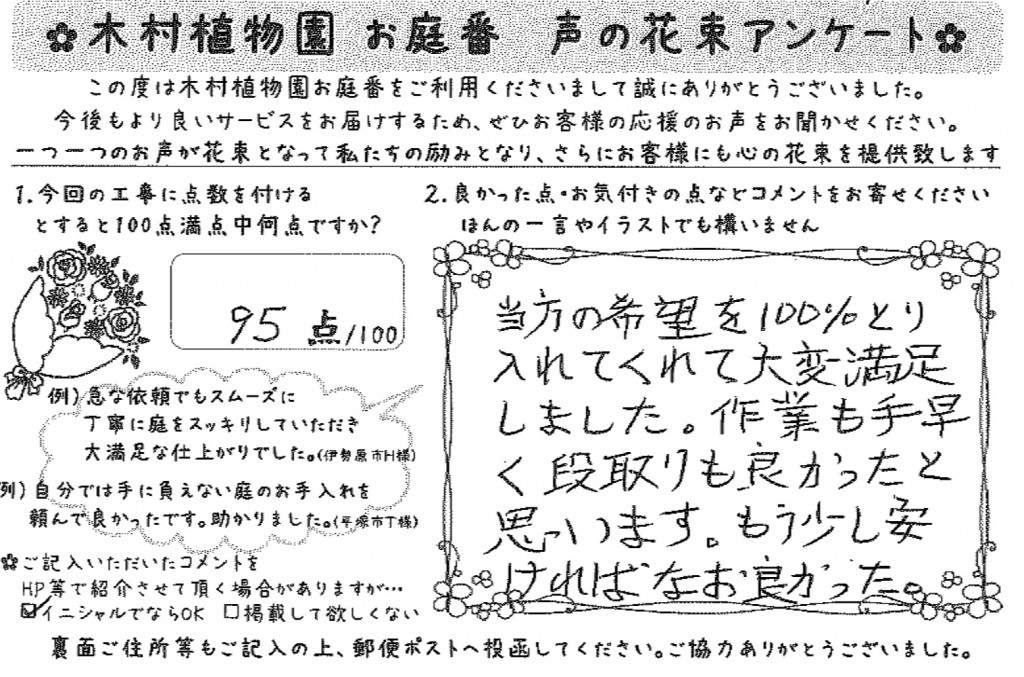 木村植物園 お庭番 声の花束アンケート
この度は木村植物園お庭番をご利用くださいまして誠にありがとうございました。
今後もより良いサービスをお届けするため、ぜひお客様の応援のお声をお聞かせください。
一つ一つのお声が花束となって私たちの励みとなり、さらにお客様にも心の花束を提供致します
1.今回の工事に点数を付ける
とすると100点満点中何点ですか?
95点/100
例)急な依頼でもスムーズに
丁寧に庭をスッキリしていただき
大満足な仕上がりでした。(伊勢原市H様)
例)自分では手に負えない庭のお手入れを
頼んで良かったです。助かりました。(平塚市T様)
✿ご記入いただいたコメントを
HP等で紹介させて頂く場合がありますが…
☑イニシャルでならOK □掲載して欲しくない
2.良かった点・お気付きの点などコメントをお寄せください
ほんの一言やイラストでも構いません
当方の希望を100%とり
入れてくれて大変満足
しました。作業も手早
く段取りも良かったと
思っいます。もう少し安
ければなお良かった。
裏面ご住所等もご記入の上、郵便ポストへ投函してください。ご協力ありがとうございました。